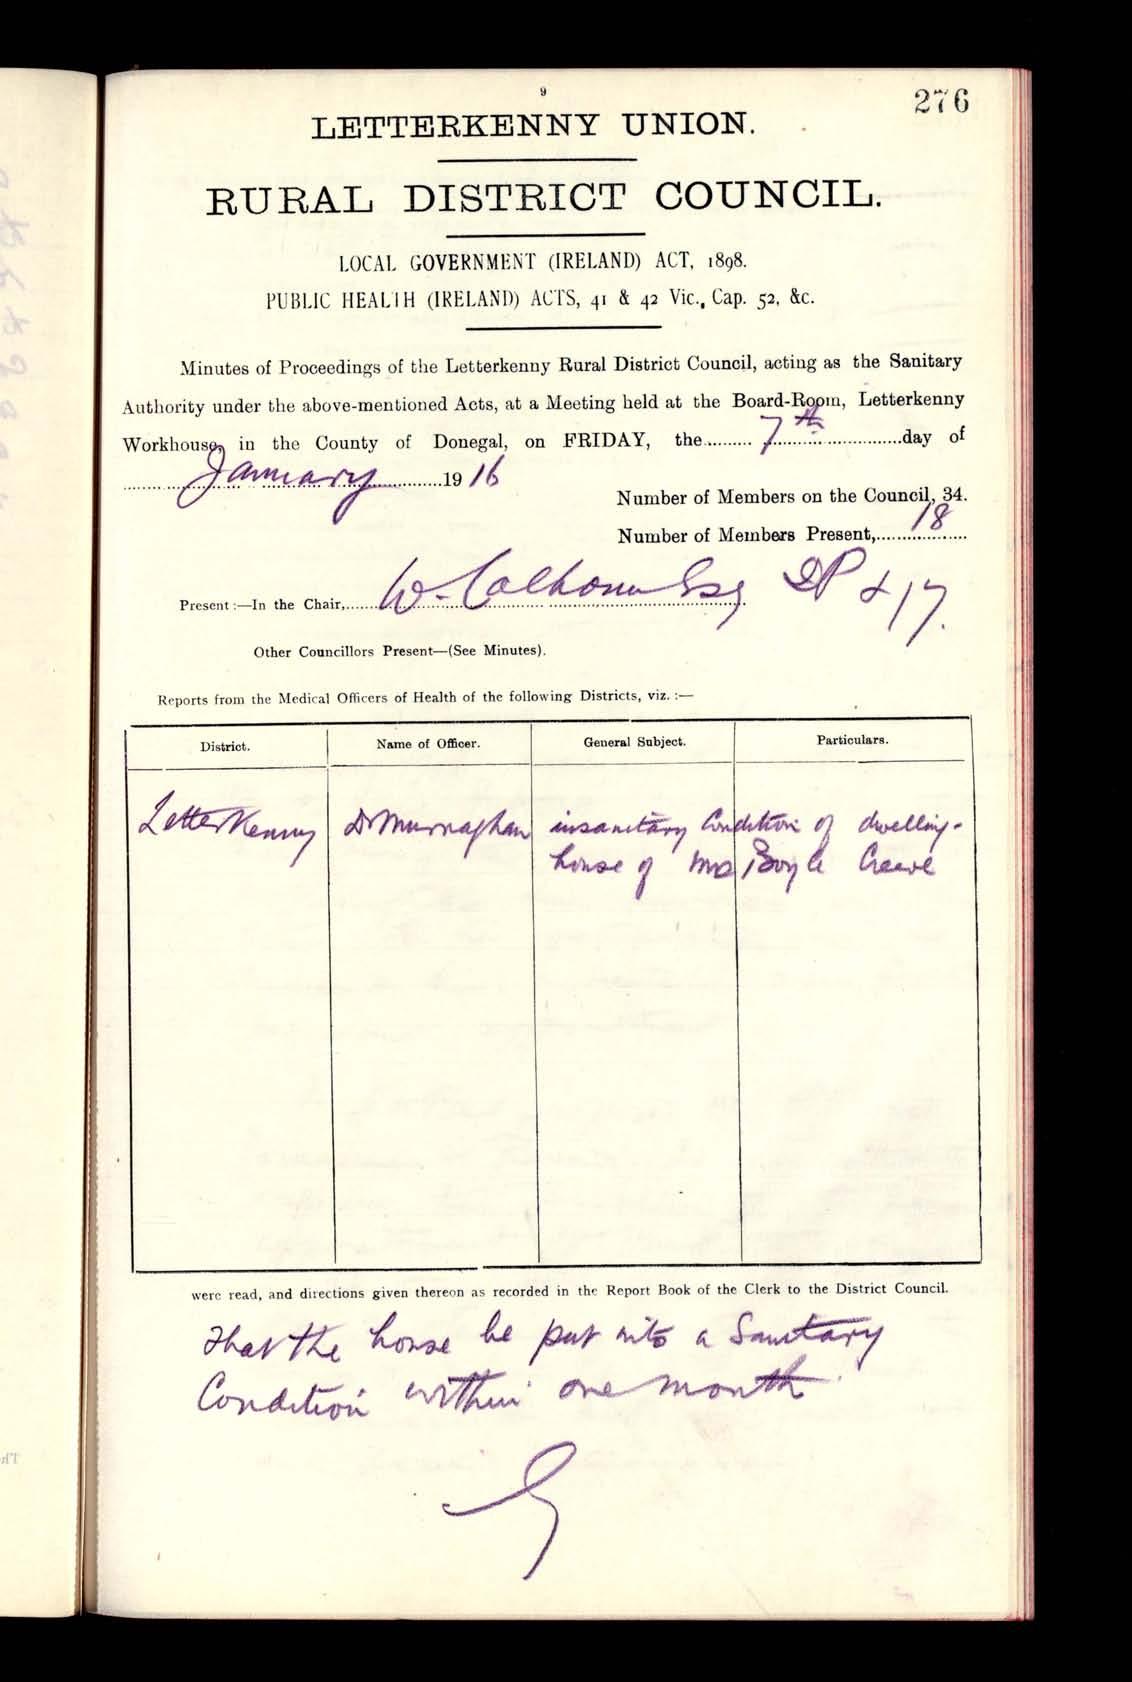 9
276
LETTERKENNY UNION.
RURAL DISTRICT COUNCIL.
LOCAL GOVERNMENT (IRELAND) ACT, 1898.
PUBLIC HEALTH (IRELAND) ACTS, 41 & 42 Vic., Cap. 52, &c.
Minutes of Proceedings of the Letterkenny Rural District Council, acting as the Sanitary
Authority under the above-mentioned Acts, at a Meeting held at the Board-Room, Letterkenny
Workhouse, in the County of Donegal, on FRIDAY, the 7th day of
January 1916
Number of Members on the Council, 34.
Number of Members Present, 18
Present:—In the Chair, W. Calhoun Esq DP & 17.
Other Councillors Present—(See Minutes).
Reports from the Medical Officers of Health of the following Districts, viz. :—
District. Name of Officer. General Subject. Particulars.
Letterkenny Dr Murnaghan insanitary Condition of dwelling-
house of Mrs Boyle Creeve
were read, and directions given thereon as recorded in the Report Book of the Clerk to the District Council.
That the house be put into a Sanitary
Condition within one month